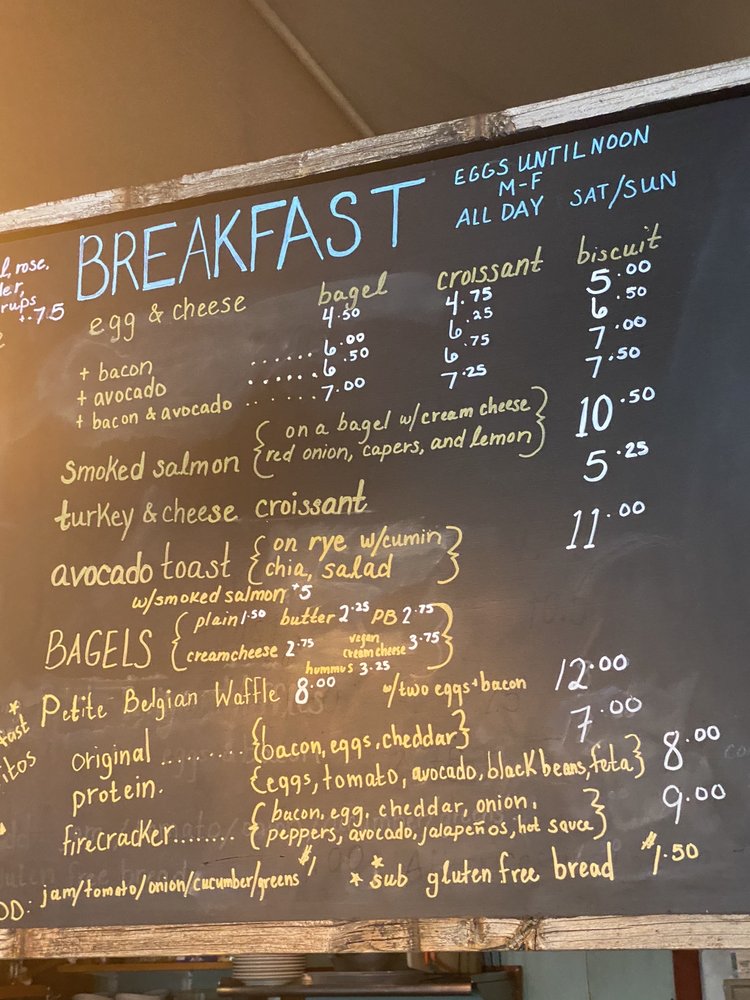 BREAKFAST
EGGS UNTIL NOON
M-F
ALL DAY SAT/SUN
rose,
+.75
egg & cheese bagel croissant biscuit
4.50 4.75 5.00
+ bacon ...... 6.00 6.25 6.50
+ avocado ...... 6.50 6.75 7.00
+ bacon & avocado ...... 7.00 7.25 7.50
smoked salmon { on a bagel w/cream cheese } 10.50
red onion, capers, and lemon
turkey & cheese croissant 5.25
avocado toast { on rye w/cumin } 11.00
chia, salad
w/smoked salmon +5
BAGELS { plain 1.50 butter 2.25 PB 2.75 }
creamcheese 2.75 vegan creamcheese 3.75
hummus 3.25
* Petite Belgian Waffle 8.00 w/two eggs+bacon 12.00
original ......... {bacon, eggs, cheddar} 7.00
protein. {eggs, tomato, avocado, black beans, feta} 8.00
firecracker........ { bacon, egg, cheddar, onion, } 9.00
peppers, avocado, jalapeños, hot sauce
jam/tomato/onion/cucumber/greens $1 ** sub gluten free bread $1.50